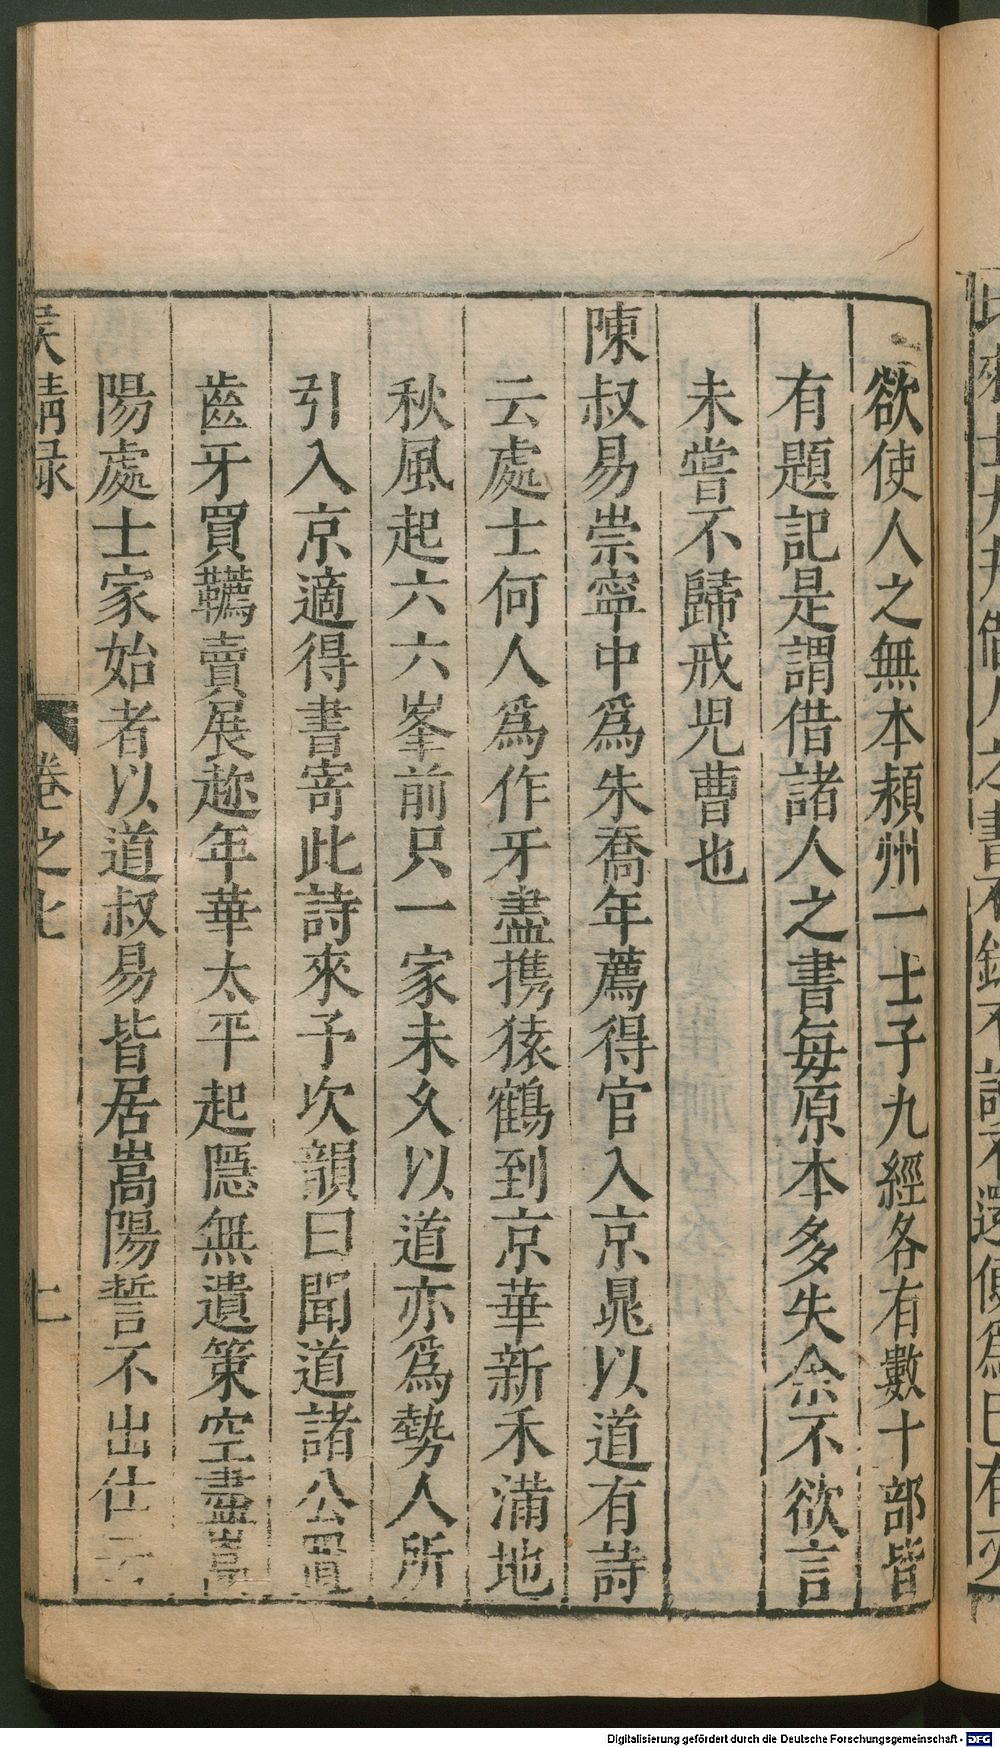 欲使人之無本潁州一士子九經各有數十部皆
有題記是謂借諸人之書每原本多失余不欲言
未嘗不歸戒児曹也
陳叔易崇寧中爲朱喬年薦得官入京晁以道有詩
云處士何人爲作牙盡携猿鶴到京華新禾滿地
秋風起六六峯前只一家未久以道亦爲勢人所
引入京適得書寄此詩來予次韻曰聞道諸公置
齒牙買韉賣展趂年華太平起隱無遺策空盡嵩
陽處士家始者以道叔易皆居嵩陽誓不出仕云
侯鯖録 卷之七 二
Digitalisierung gefördert durch die Deutsche Forschungsgemeinschaft - DFG